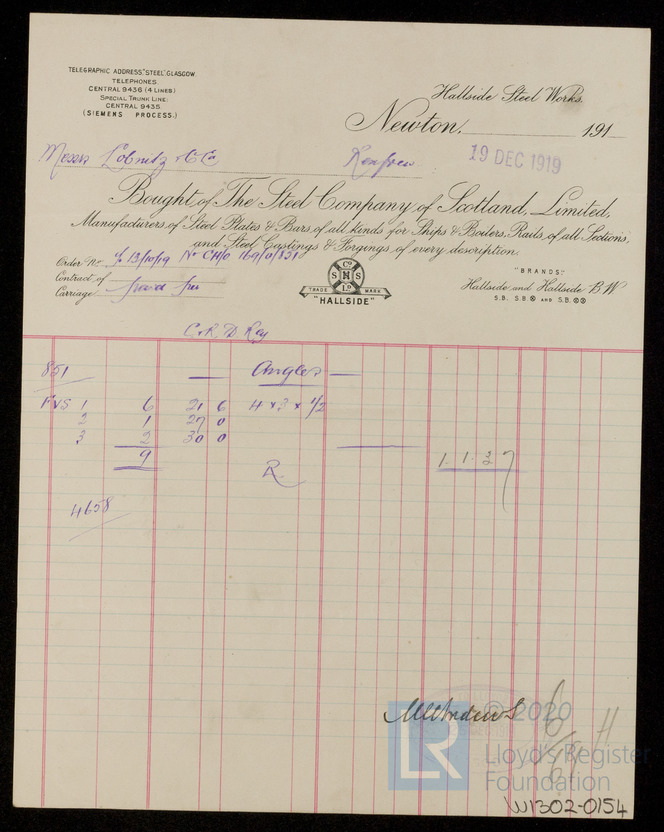 TELEGRAPHIC ADDRESS, "STEEL", GLASGOW.
TELEPHONES.
CENTRAL 9436 (4 LINES)
SPECIAL TRUNK LINE:
CENTRAL 9435.
(SIEMENS PROCESS.)
Hallside Steel Works.
Newton. 191
19 DEC 1919
Messrs Lobnitz & Co Renfrew
Bought of The Steel Company of Scotland, Limited,
Manufacturers of Steel Plates & Bars of all kinds for Ships & Boilers, Rails of all Sections,
and Steel Castings & Forgings of every description.
Order No. 13/10/19 No
Contract of
Carriage
Co
S H S
LD
TRADE MARK
"HALLSIDE"
"BRANDS":
Hallside and Hallside B W
S.B. S.B. AND S.B.
851 Angles
FVS 1 6 21 6 4 x 3 x 1/2
2 1 27 0
3 2 30 0
9 1. 1. 3 7
R
4658
© 2020
LR
Lloyd's Register
Foundation
W1302-0154